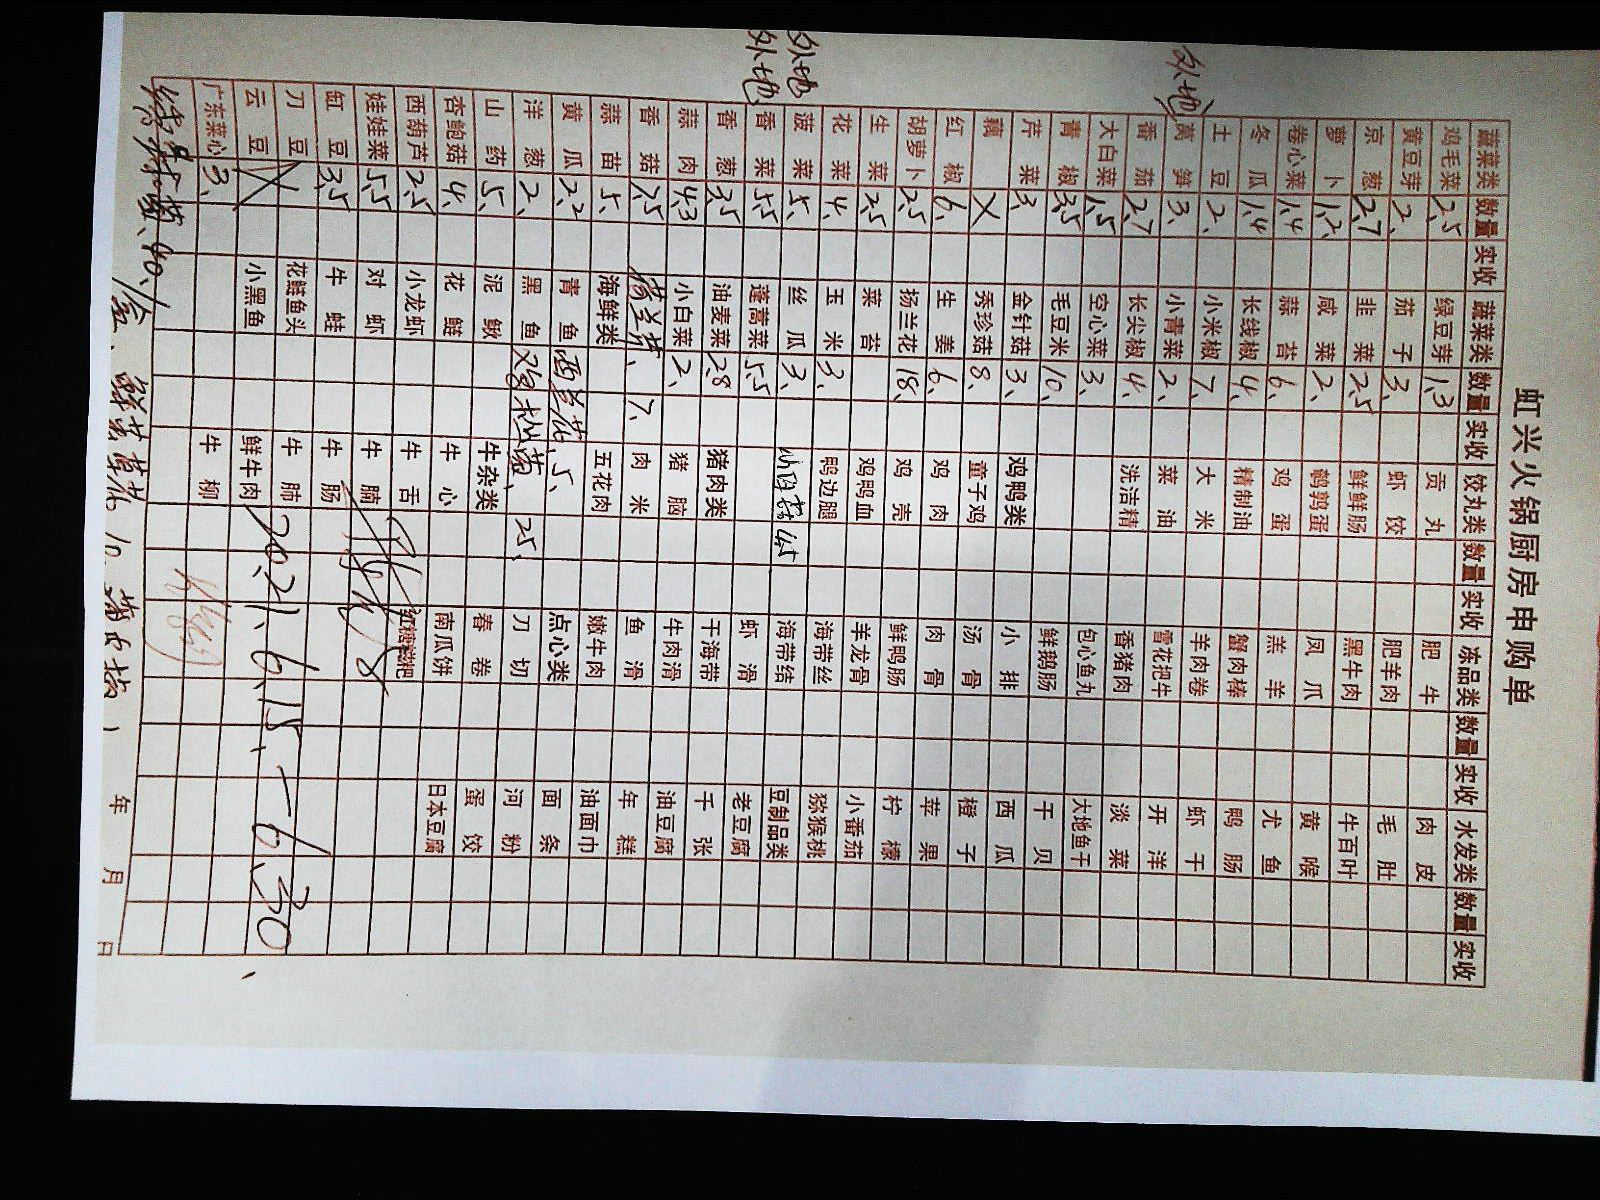 虹兴火锅厨房申购单
蔬菜类 数量 实收 蔬菜类 数量 实收 饺丸类 数量 实收 冻品类 数量 实收 水发类 数量 实收
鸡毛菜 2.5 绿豆芽 1.3 贡丸 肥牛 肉皮
黄豆芽 2、 茄子 3、 虾饺 肥羊肉 毛肚
京葱 2.7 韭菜 2.5 鲜鲜肠 黑牛肉 牛百叶
萝卜 1.2、 咸菜 2、 鹌鹑蛋 凤爪 黄喉
卷心菜 1.4 蒜苔 6、 鸡蛋 羔羊 尤鱼
冬瓜 1.4 长线椒 4、 精制油 蟹肉棒 鸭肠
土豆 2、 小米椒 7、 大米 羊肉卷 虾干
外地 莴笋 3、 小青菜 2、 菜油 雪花把牛 开洋
番茄 2.7 长尖椒 4、 洗洁精 香猪肉 淡菜
大白菜 1.5 空心菜 3、 包心鱼丸 大地鱼干
青椒 3.5 毛豆米 10、 鲜鹅肠 干贝
芹菜 3、 金针菇 3、 鸡鸭类 小排 西瓜
藕 X 秀珍菇 8、 童子鸡 汤骨 橙子
红椒 6、 生姜 6、 鸡肉 肉骨 苹果
胡萝卜 2.5 扬兰花 18、 鸡壳 鲜鸭肠 柠檬
生菜 2.5 菜苔 鸡鸭血 羊龙骨 小番茄
花菜 4、 玉米 3、 鸭边腿 海带丝 猕猴桃
外地 菠菜 5、 丝瓜 3、 4.5 海带结 豆制品类
外地 香菜 5.5 蓬蒿菜 5.5 虾滑 老豆腐
香葱 3.5 油麦菜 2.8 猪肉类 干海带 千张
蒜肉 4.3 小白菜 2、 猪脑 牛肉滑 油豆腐
香菇 7.5 7、 肉米 鱼滑 年糕
蒜苗 5、 海鲜类 五花肉 嫩牛肉 油面巾
黄瓜 2.2 青鱼 西兰花、5、 点心类 面条
洋葱 2、 黑鱼 鸡枞菌、25、 刀切 河粉
山药 5、 泥鳅 牛杂类 春卷 蛋饺
杏鲍菇 4、 花鲢 牛心 南瓜饼 日本豆腐
西葫芦 2.5 小龙虾 牛舌 红糖糍粑
娃娃菜 5.5 对虾 牛腩
缸豆 3.5 牛蛙 牛肠
刀豆 X 花鲢鱼头 牛肺
云豆 X 小黑鱼 鲜牛肉 2021、6.15、－6.30、
广东菜心 3、 牛柳
年 月 日